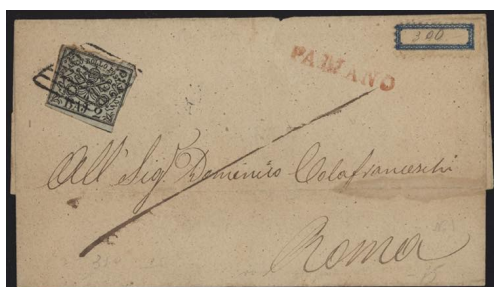 300
PALIANO
BOLLO
BAJ
All' Sig. Domenico Colafranceschi
Roma